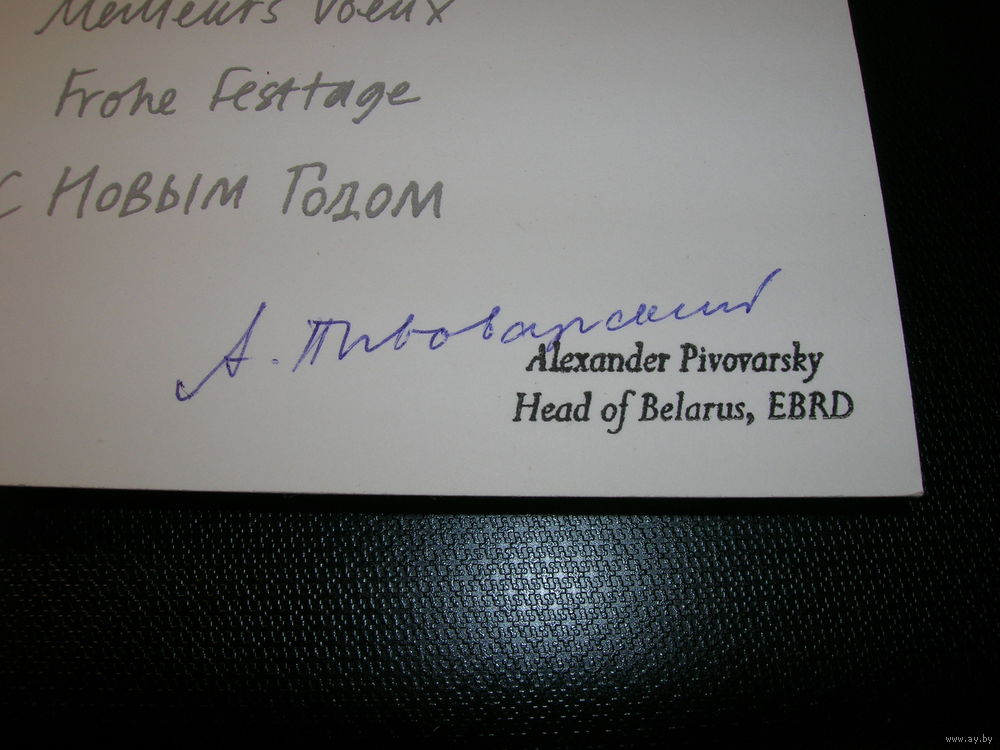 Meilleurs Voeux
Frohe Festtage
С Новым Годом
А. Пивоварский
Alexander Pivovarsky
Head of Belarus, EBRD
www.ay.by